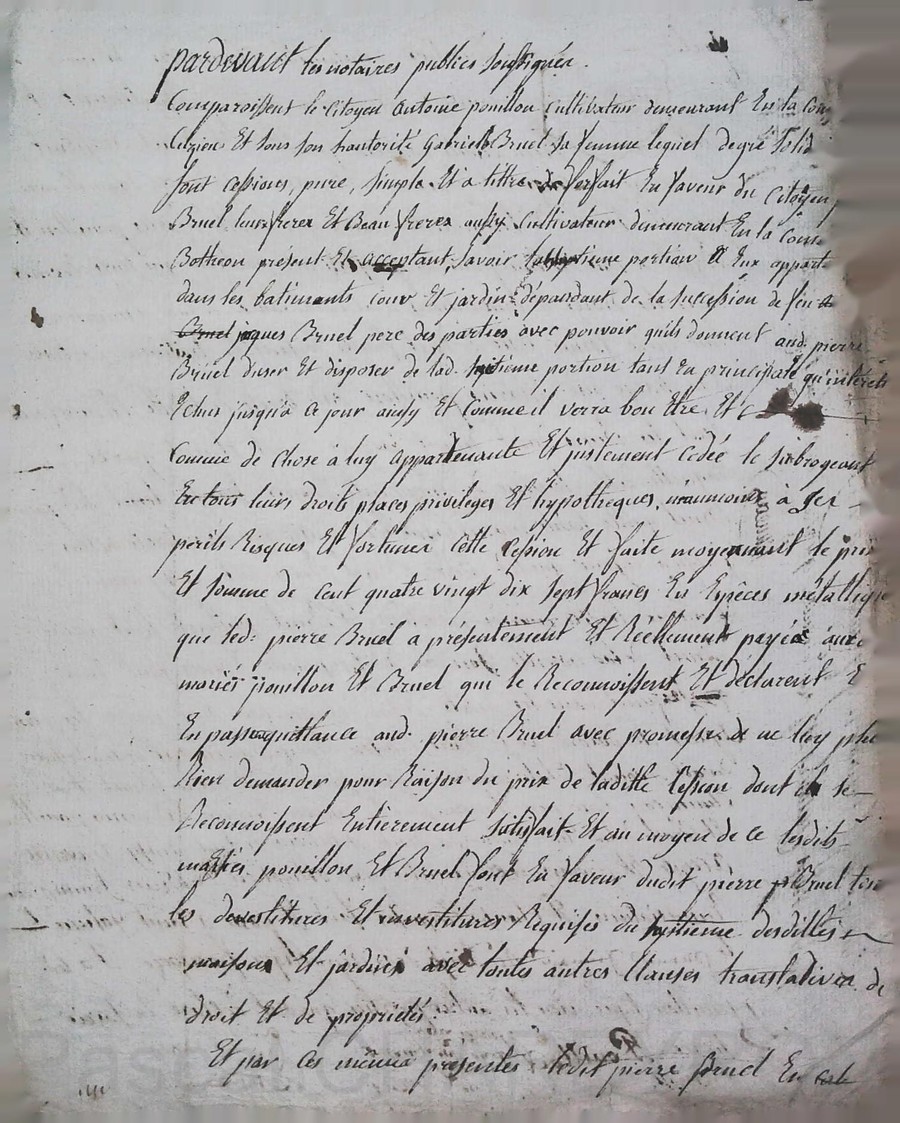 pardevant les notaires publics soussignés.
Comparoissent le Citoyen Antoine pouillon Cultivateur demeurant En la Com
Et sous son hautorité Gabriele Bruel sa femme lequel degré
font cessions, pure, simple Et a titre de forfait En faveur du Citoyen
Bruel leurs freres Et Beau freres aussy Cultivateur demeurant En la Com
Botheon présent Et acceptant, savoir portion a Eux appart
dans les batiments cour Et jardin dépandant de la succession de feu
jaques Bruel pere des parties avec pouvoir quils donnent aud. pierre
Bruel duser Et disposer de lad. portion tant En principale qu'intérêts
Echus jusqu'a ce jour aussy Et Comme il verra bon Etre Et
Comme de Chose à luy appartenante Et justement Cédée le subrogeant
En tous leurs droits places privileges Et hypotheques, à ses
perils Risques Et fortunes Cette Cession Et faite moyennant le prix
Et somme de Cent quatre vingt dix sept francs En Espèces métallique
que led: pierre Bruel a présentement Et Réellement payée aux
mariés pouillon Et Bruel qui le Reconnoissent Et déclarent
En passe quittance aud. pierre Bruel avec promesse de ne luy plus
Rien demander pour Raison du prix de laditte Cession dont ils se
Reconnoissent Entierement satisfait Et au moyen de ce lesdits
mariés pouillon Et Bruel font En faveur dudit pierre Bruel tou
les devestitures Et investitures Requises du desdittes
maisons Et jardins avec toutes autres Clauses translatives de
droit Et de propriétés.
Et par Ces mêmes présentes ledit pierre Bruel En